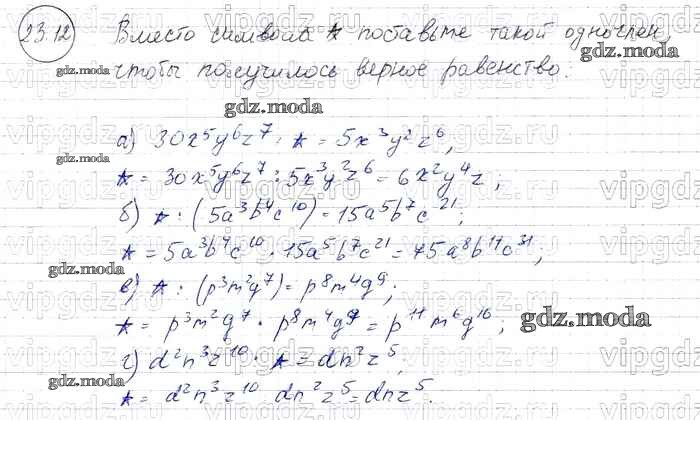 23.12 Вместо символа ★ поставьте такой одночлен,
чтобы получилось верное равенство.
а) 30x⁵y⁶z⁷ : ★ = 5x³y²z⁶,
★ = 30x⁵y⁶z⁷ : 5x³y²z⁶ = 6x²y⁴z;
б) ★ : (5a³b⁴c¹⁰) = 15a⁵b⁷c²¹;
★ = 5a³b⁴c¹⁰ · 15a⁵b⁷c²¹ = 75a⁸b¹¹c³¹;
в) ★ : (p³m²q⁷) = p⁸m⁴q⁹;
★ = p³m²q⁷ · p⁸m⁴q⁹ = p¹¹m⁶q¹⁶;
г) d²n³z¹⁰ : ★ = dn²z⁵,
★ = d²n³z¹⁰ dn²z⁵ = dnz⁵.
gdz.moda
vipgdz.ru